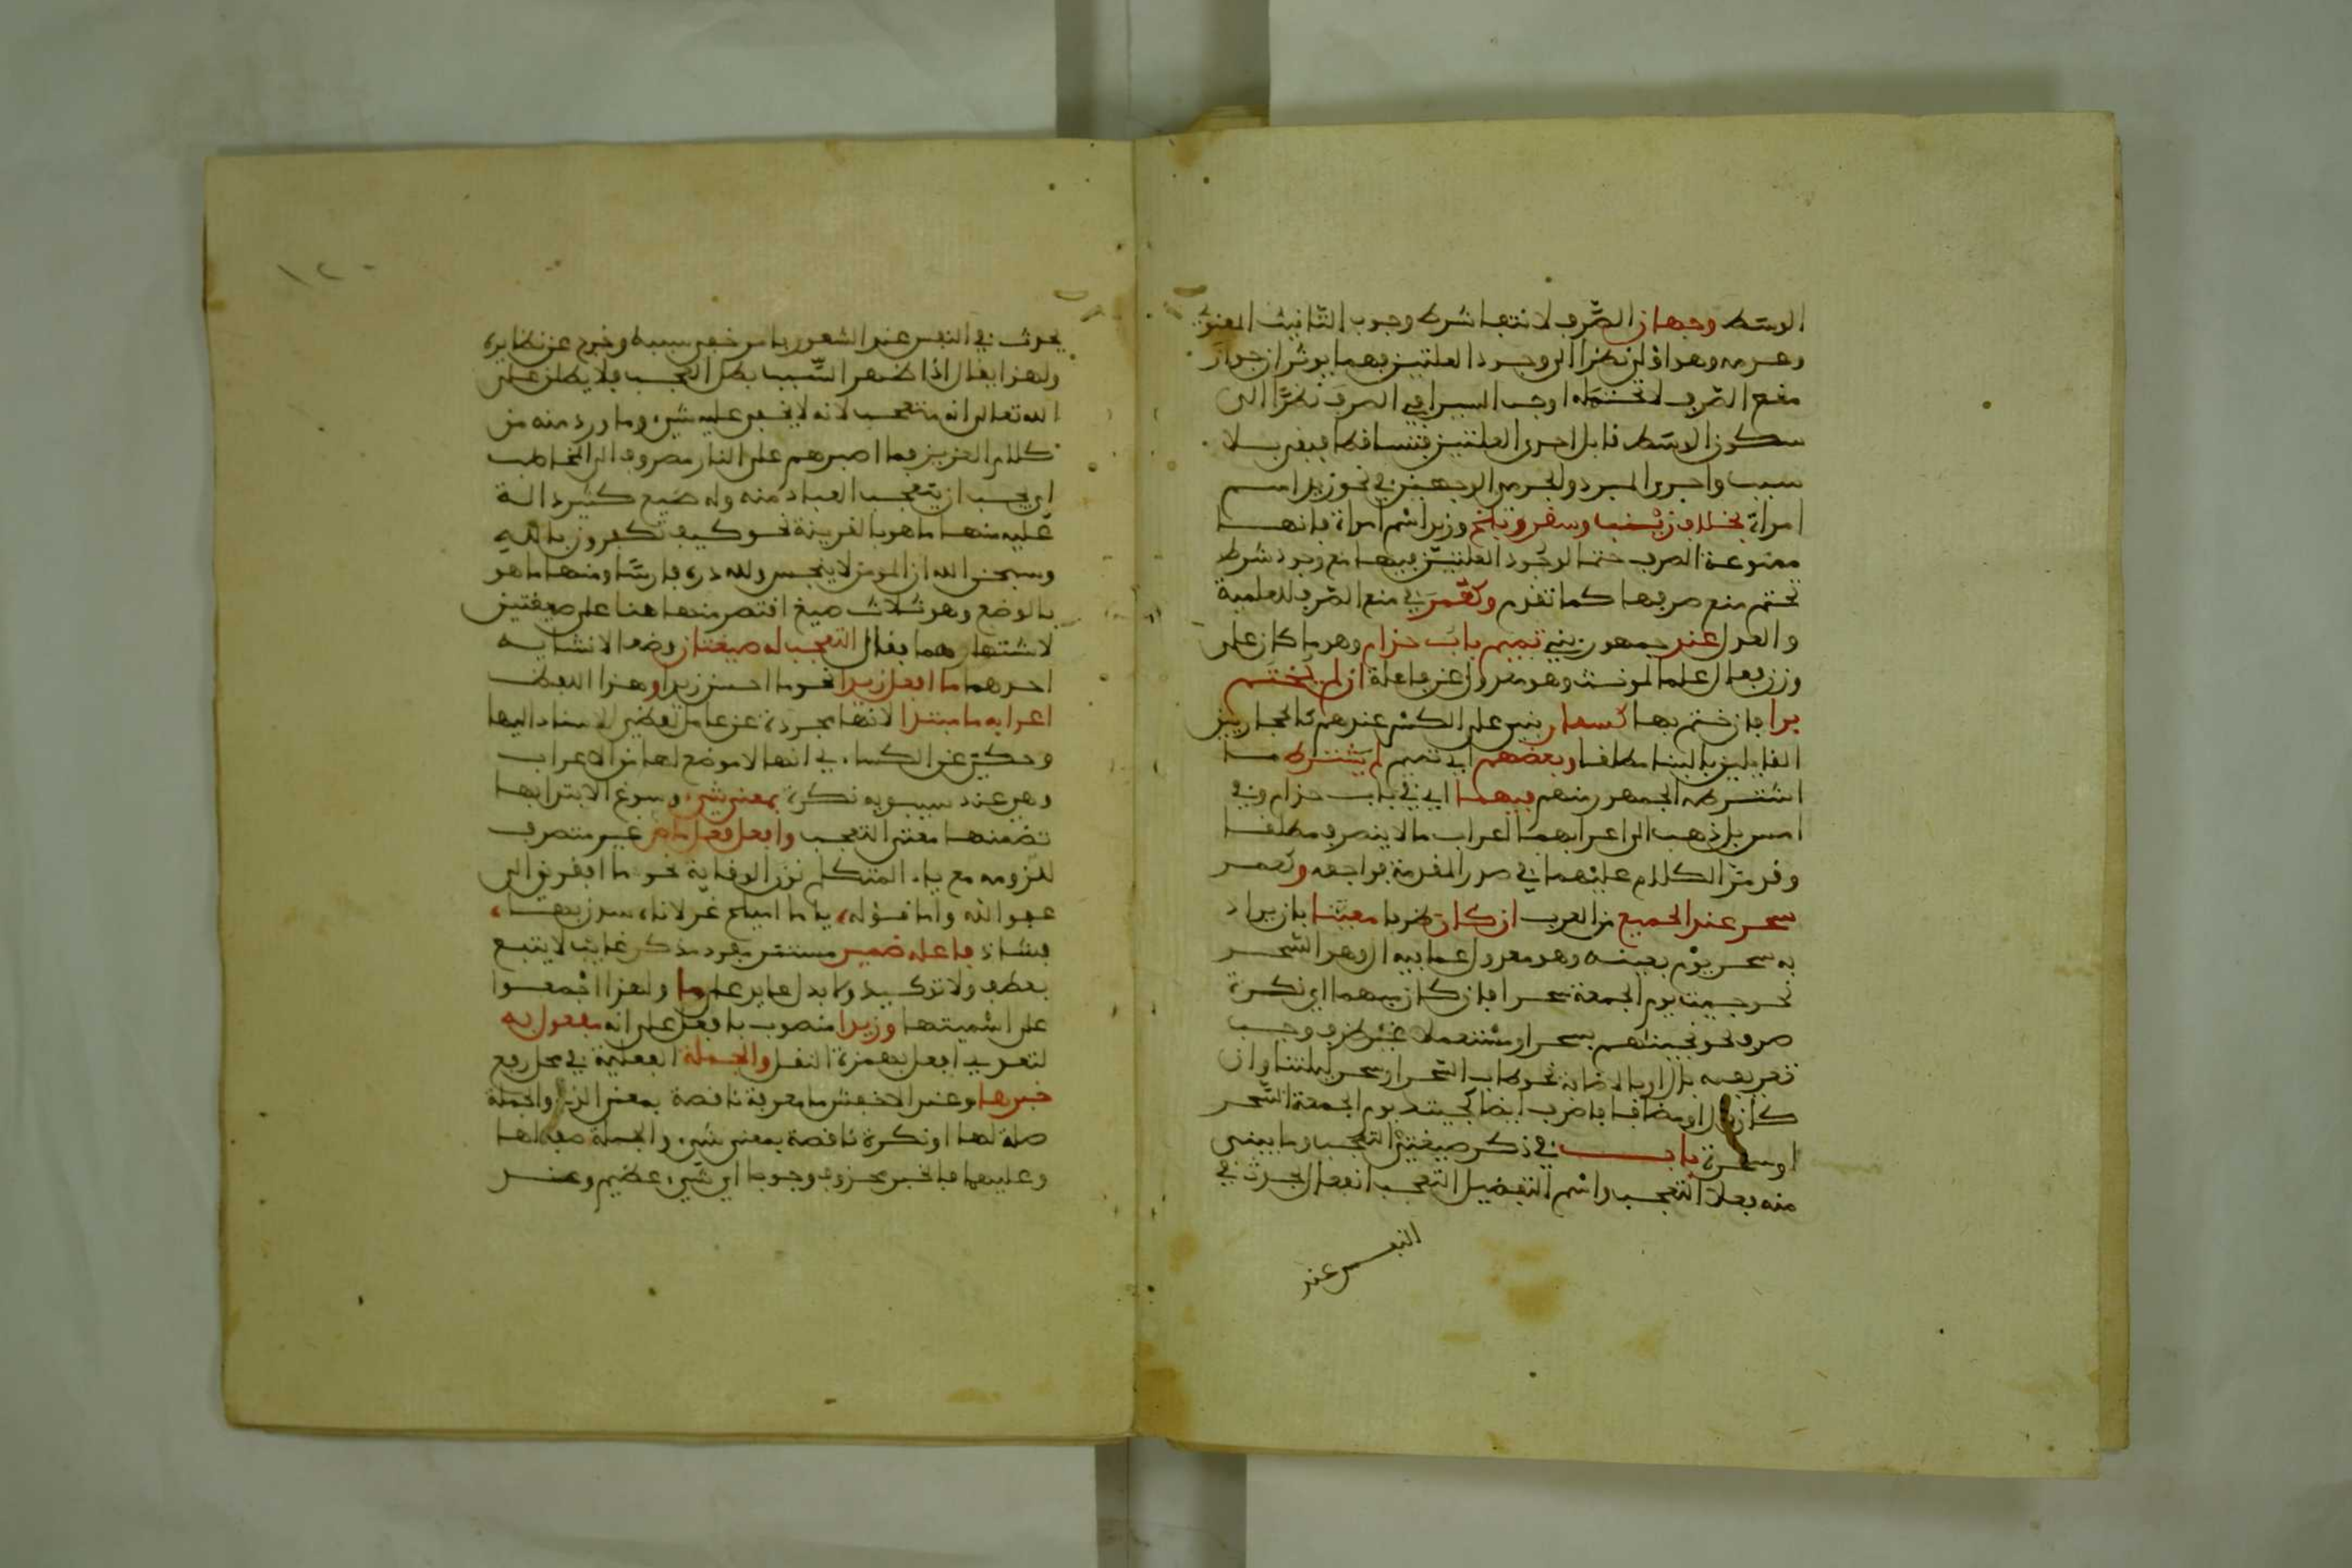 الوسط وجهان الصرف لانتفا شرط وجوب التانيث المعنوي
وعدمه وهو اولى نظرا الى وجود العلتين وهما يوثران جواز
منع الصرف لا تحتمه اوجب السيرافي الصرف نظرا الى
سكون الاوسط قابل احدى العلتين فتساقطا فبقي بلا
سبب واجرى المبرد والجرمي الوجهين في نحو زيد اسم
امراة بخلاف زينب وسقر وبلخ وزيد اسم امراة فانهـا
ممنوعة الصرف حتما لوجود العلتين فيها مع وجود شرط
تحتم منع صرفها كما تقدم وكعمر في منع الصرف للعلمية
والعدل عند جمهور بني تميم باب حذام وهو ما كان على
وزن فعال علما لمونث وهو معدول عن فاعلة ان لم يختم
برا فان ختم بها كسفار بني على الكسر عندهم كالحجازيين
القايلين بالبنا مطلقا وبعضهم اي تميم لم يشترط ما
اشترطه الجمهور منهم فيهما اي في باب حذام وفي
امس بل ذهب الى اعرابهما اعراب ما لا ينصرف مطلقـا
وقد مر الكلام عليهما في صدر المقدمة فراجعه وكعمر
سحر عند الجميع من العرب ان كان ظرفا معينا بان يراد
به سحر يوم بعينه وهو معدول عما فيه ال وهو السحر
نحو جيت يوم الجمعة سحر فان كان مبهما اي نكرة
صرف نحو نجيناهم بسحر او مستعملا غير ظرف وجب
تعريفه بال او بالاضافة نحو طاب السحر او سحر ليلتنا وان
كان بال او مضافا فاضرب ايضا كجيتك يوم الجمعة السحر
او سحره باب في ذكر صيغتي التعجب وما يبنى
منه فعلا التعجب واسم التفضيل التعجب انفعال يحدث في
النفس عند
١٢٠
يحدث في النفس عند الشعور بامر خفي سببه وخرج عن نظايره
ولهذا يقال اذا ظهر السبب بطل العجب فلا يطلق على
الله تعالى انه متعجب لانه لا يخفى عليه شيء وما ورد منه من
كلام العزيز فما اصبرهم على النار مصروف الى المخاطب
اي يجب ان يتعجب العباد منه وله صيغ كثيرة دالـة
عليه منها ما هو بالقرينة نحو كيف تكفرون بالله
وسبحن الله ان المومن لا ينجس ولله دره فارسا ومنها ما هو
بالوضع وهو ثلاث صيغ اقتصر منها هنا على صيغتين
لاشتهارهما فقال التعجب له صيغتان وضعا لانشايـه
احدهما ما افعل زيدا نحو ما احسن زيدا وهذا اللفظ
اعرابه ما مبتدا لانها مجردة عن عامل لفظي للاسناد اليها
وحكي عن الكساءي انها لا موضع لها من الاعراب
وهي عند سيبويه نكرة بمعنى شيء وسوغ الابتدا بها
تضمنها معنى التعجب وافعل فعل ماض غير متصرف
للزومه مع ياء المتكلم نون الوقاية نحو ما افقرني الى
عفو الله واما قوله، يا ما اميلح غزلانا شدن لنـا،
فشاذ فاعله ضمير مستتر مفرد مذكر غايب لا يتبع
بعطف ولا توكيد ولا بدل عايد على ما ولهذا اجمعوا
على اسميتها وزيدا منصوب بافعل على انه مفعول به
لتعريب افعل بهمزة النقل والجملة الفعلية في محل رفع
خبرها وعند الاخفش ما معرفة ناقصة بمعنى الذي والجملة
صلة لها او نكرة ناقصة بمعنى شيء والجملة صفة لها
وعليهما فالخبر محذوف وجوبا اي شيء عظيم وعنـد